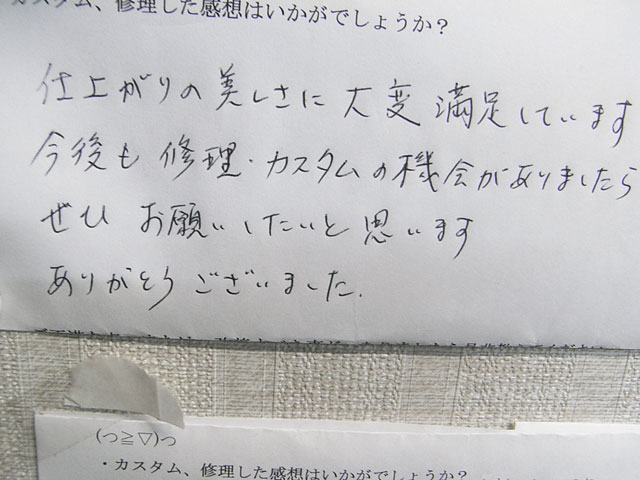 カスタム、修理した感想はいかがでしょうか?
仕上がりの美しさに大変満足しています
今後も修理・カスタムの機会がありましたら
ぜひお願いしたいと思います
ありがとうございました.
(つ≧▽)つ
・カスタム、修理した感想はいかがでしょうか?